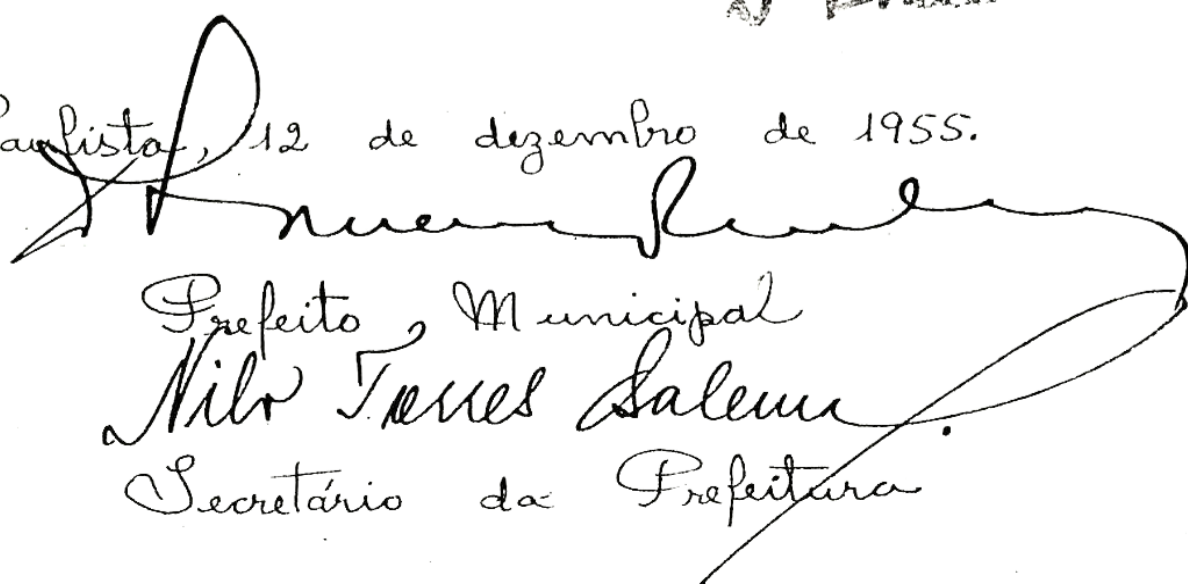 Paulista, 12 de dezembro de 1955.
Prefeito Municipal
Nilo Torres Salema
Secretário da Prefeitura